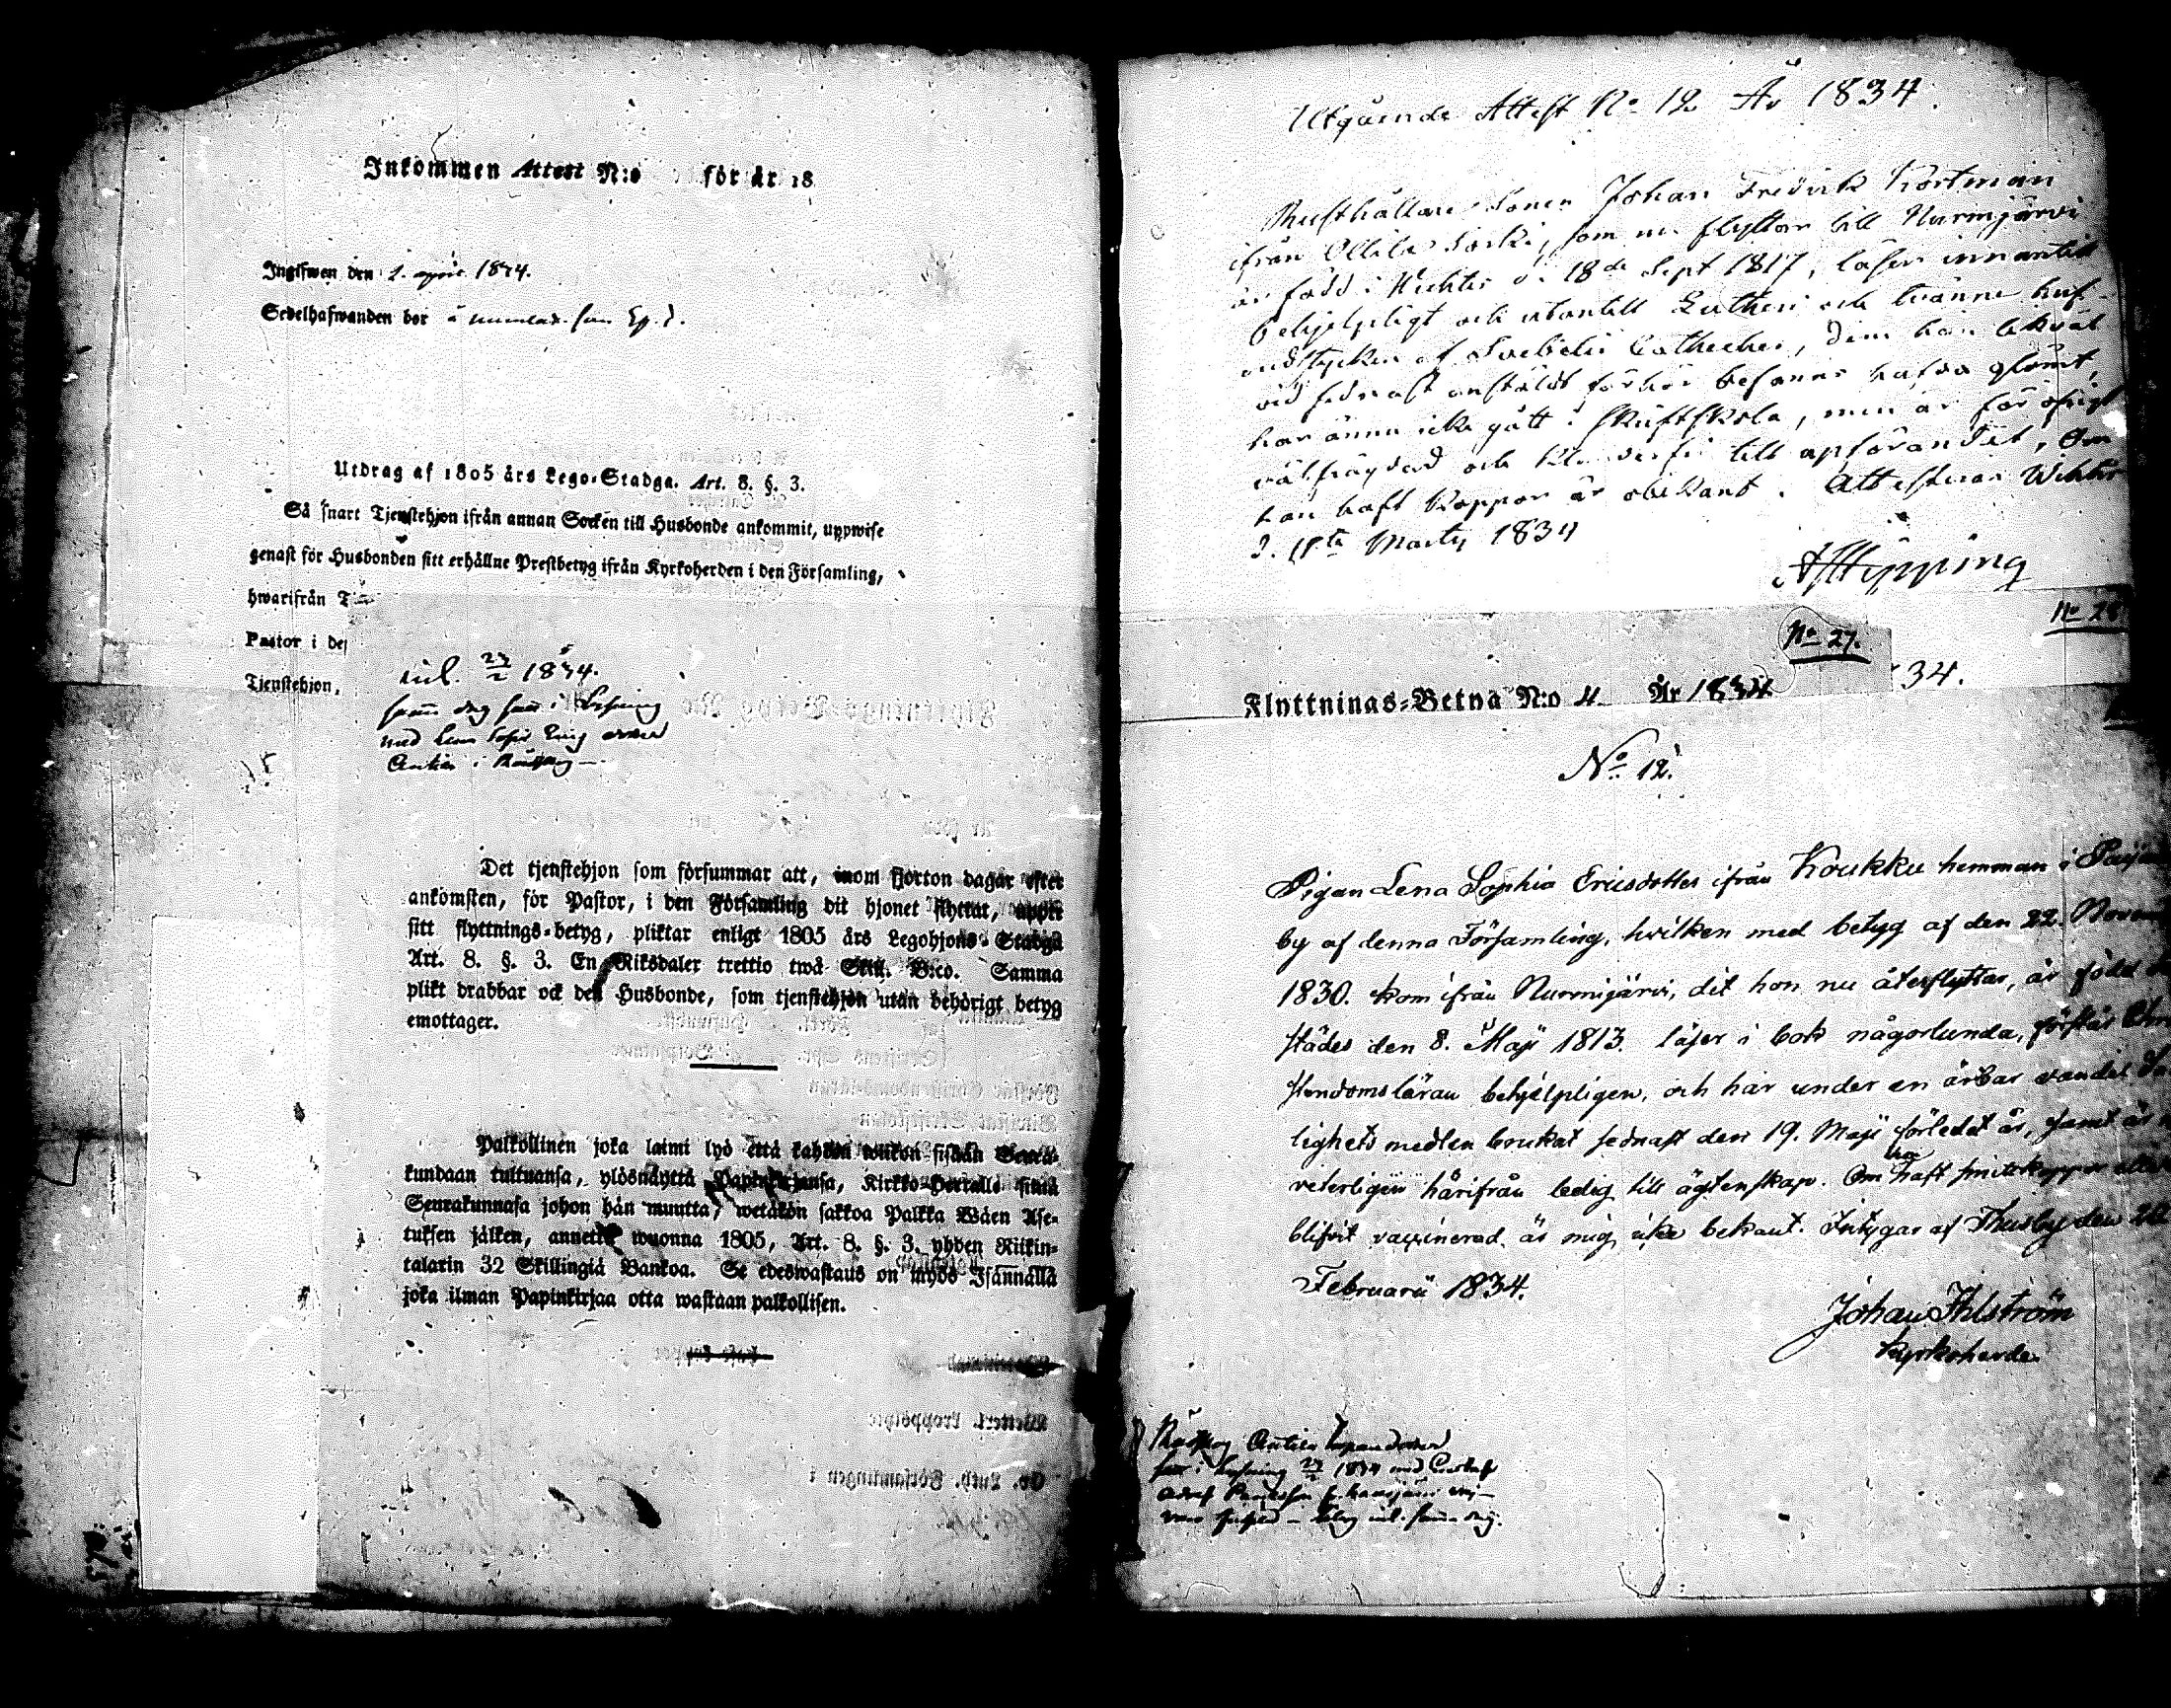 Inkommen Attest N:o för år 18
Ingifwen den 1. april 1834.
Sedelhafwanden bor
Utdrag af 1805 års Lego-Stadga. Art. 8. §. 3.
Så snart Tjenstehjon ifrån annan Socken till Husbonde ankommit, uppwise
genast för Husbonden sitt erhållne Prestbetyg ifrån Kyrkoherden i den Församling,
hwarifrån
Pastor i de
Tjenstehjon,
inl. 23/2 1834.
med Lena
i
Det tjenstehjon som försummar att, inom fjorton dagar efter
ankomsten, för Pastor, i den Församling dit hjonet flyttat, uppte
sitt flyttnings-betyg, pliktar enligt 1805 års Legohjons-Stadga
Art. 8. §. 3. En Riksdaler trettio twå Skill. B:co. Samma
plikt drabbar ock den Husbonde, som tjenstehjon utan behörigt betyg
emottager.
Palkollinen joka laimi lyö että kahden wiikon sisään Seura-
kundaan tultuansa, ylösnäyttä Papinkirjansa, Kirkko-Herralle siinä
Seurakunnasa johon hän muutta, wetäkön sakkoa Palkka Wäen Ase-
tuksen jälken, annettu wuonna 1805, Art. 8. §. 3. yhden Riikin-
talarin 32 Skillingiä Bankoa. Se edeswastaus on myös Isännällä
joka ilman Papinkirjaa otta wastaan palkollisen.
Utgående Attest No 12 År 1834.
Rusthållare Sonen Johan Fredrik Kortman
ifrån Ollila, som nu flyttar till Nurmijärvi
är född i Wichtis d. 18de Sept 1817, läser innantill
behjelpligt och utantill Lutheri och tvänne huf-
vudstycken af Svebelii Catheches, dem han likväl
vid sednast anstäldt förhör befanns hafva glömt,
har ännu icke gått i Skriftskola, men är för öfrigt
välfrägdad och till uppförandet. Om
han haft koppor är obekant. Attesterar Wichtis
d. 18te Martij 1834
No 27.
No 28
34.
Flyttnings-Betyg N:o 4 År 1834
No 12.
Pigan Lena Sophia Ericsdotter ifrån Koukku hemman i
by af denna Församling, hvilken med betyg af den 22. Novem
1830. kom ifrån Nurmijärvi, dit hon nu återflyttar, är född
städes den 8. Maji 1813. läser i bok någorlunda, förstår Chri
stendomsläran behjelpligen, och har under en ärbar vandel
lighets medlen brukat sednast den 19. Maji förledet år, samt är
veterligen härifrån ledig till ägtenskap. Om hon haft smittkoppor eller
blifvit vaccinerad är mig icke bekant. Intygar af Thusby den 22
Februarii 1834.
Johan Ihlström
Kyrkoherde.
i lysning 23/2 1834 med Gustaf
Adolf